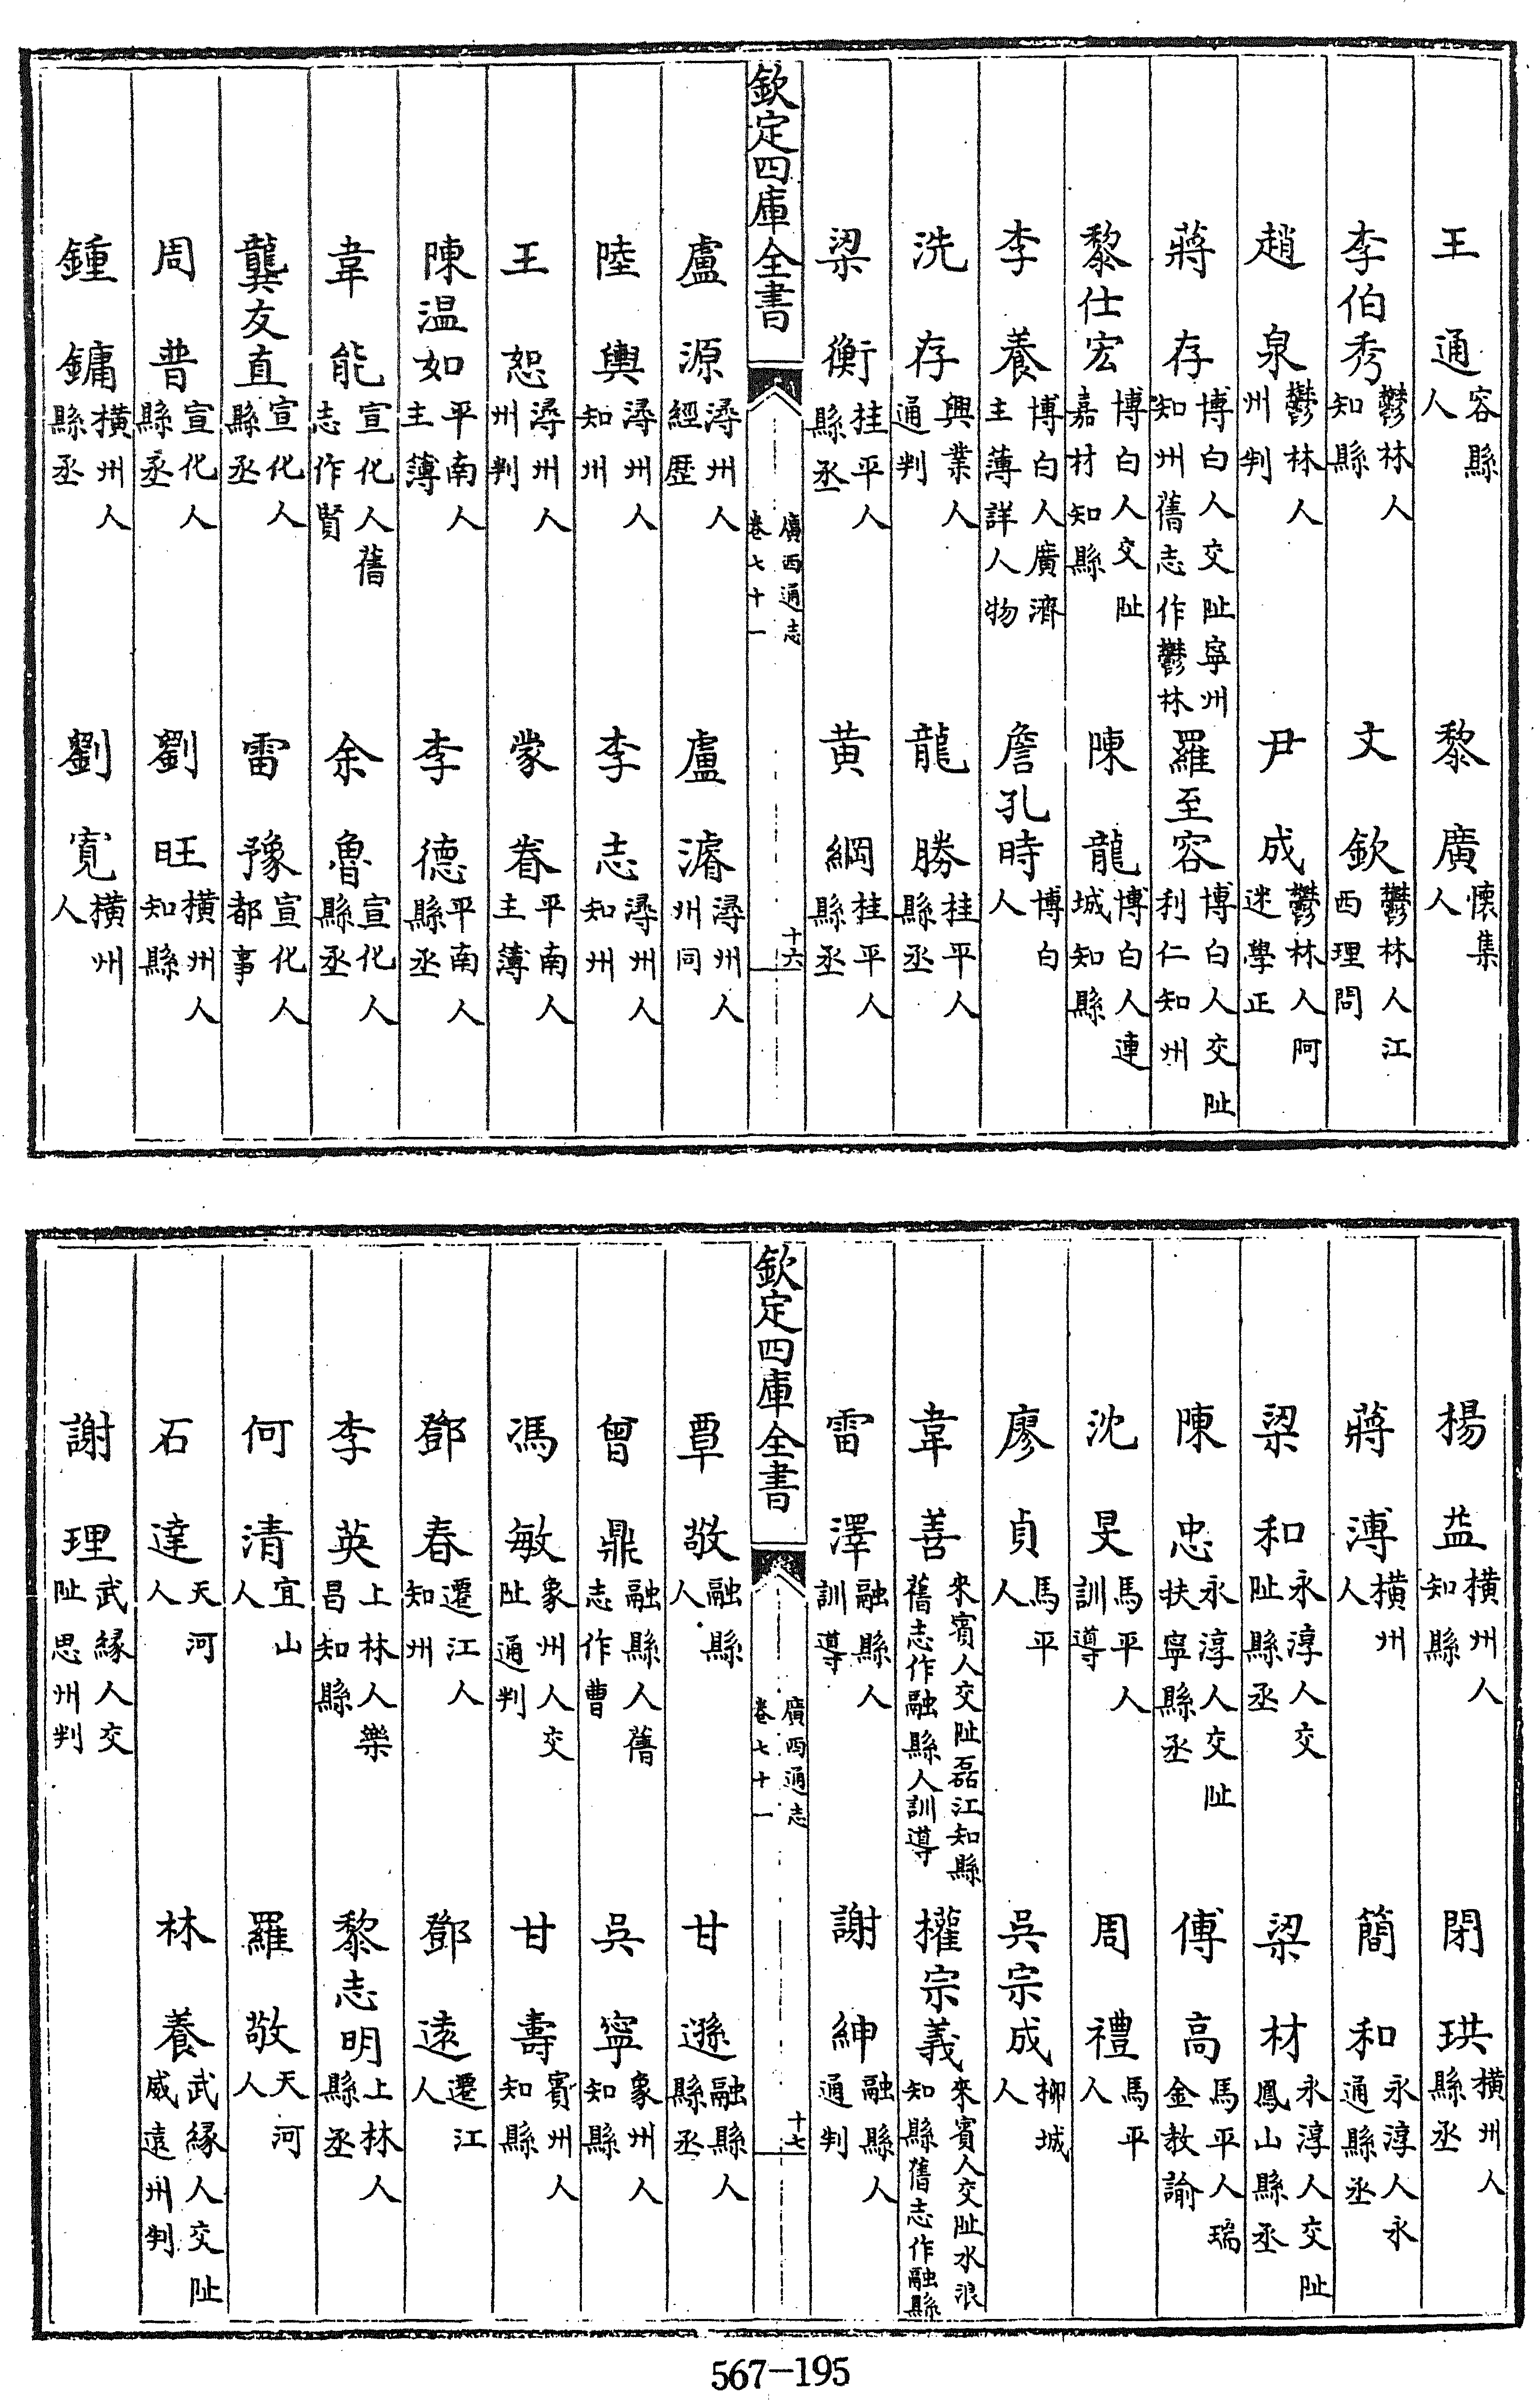 王通容縣人　黎廣懷集人
李伯秀鬱林人知縣　文欽鬱林人江西理問
趙泉鬱林人州判　尹成鬱林人阿迷學正
蔣存博白人交阯寧州知州舊志作鬱林　羅至容博白人交阯利仁知州
黎仕宏博白人交阯嘉材知縣　陳龍博白人連城知縣
李養博白人廣濟主薄詳人物　詹孔時博白人
洗存興業人通判　龍勝桂平人縣丞
梁衡桂平人縣丞　黄綱桂平人縣丞
欽定四庫全書　廣西通志卷七十一　十六
盧源潯州人經歴　盧濬潯州人州同
陸輿潯州人知州　李志潯州人知州
王恕潯州人州判　蒙眷平南人主薄
陳温如平南人主薄　李德平南人縣丞
韋能宣化人舊志作賢　余魯宣化人縣丞
龔友直宣化人縣丞　雷豫宣化人都事
周普宣化人縣丞　劉旺橫州人知縣
鍾鏞橫州人縣丞　劉寛橫州人
楊益橫州人知縣　閉珙橫州人縣丞
蔣溥橫州人　簡和永淳人永通縣丞
梁和永淳人交阯縣丞　梁材永淳人交阯鳳山縣丞
陳忠永淳人交阯扶寧縣丞　傅高馬平人瑞金教諭
沈旻馬平人訓導　周禮馬平人
廖貞馬平人　吳宗成柳城人
韋善來賓人交阯磊江知縣舊志作融縣人訓導　權宗義來賓人交阯水浪知縣舊志作融縣
雷澤融縣人訓導　謝紳融縣人通判
欽定四庫全書　廣西通志卷七十一　十七
覃敬融縣人　甘遜融縣人縣丞
曾鼎融縣人舊志作曹　吳寧象州人知縣
馮敏象州人交阯通判　甘壽賓州人知縣
鄧春遷江人知州　鄧遠遷江人
李英上林人樂昌知縣　黎志明上林人縣丞
何清宜山人　羅敬天河人
石達天河人　林養武縁人交阯威遠州判
謝理武縁人交阯思州判
567-195